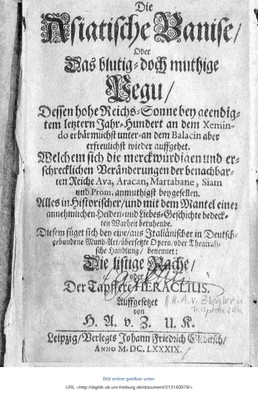 Die
Asiatische Banise/
Oder
Das blutig-doch muthige
Pegu/
Dessen hohe Reichs-Sonne bey geendig-
tem letztern Jahr-Hundert an dem Xemin-
do erbärmlichst unter-an dem Balacin aber
erfreulichst wieder auffgehet.
Welchem sich die merckwürdigen und er-
schrecklichen Veränderungen der benachbar-
ten Reiche Ava, Aracan, Martabane, Siam
und Prom, anmuthigst beygesellen.
Alles in Historischer/ und mit dem Mantel einer
annehmlichen Helden-und Liebes-Geschichte bedeck-
ten Warheit beruhende.
Diesem füget sich bey eine/ aus Italiänischer in Deutsch-
gebundene Mund-Art/ übersetzte Opera/ oder Theatrali-
sche Handlung/ benennet:
Die listige Rache/
oder
Der Tapffere HERACLIUS.
Auffgesetzet
von
H. A. v. Z. U. K.
Leipzig/ Verlegts Johann Friedrich Gleditsch/
ANNO M. DC. LXXXIX.
H. A. v. Ziegler u.
Bild online greifbar unter:
URL <http://digilib.ub.uni-freiburg.de/document/313140979/>